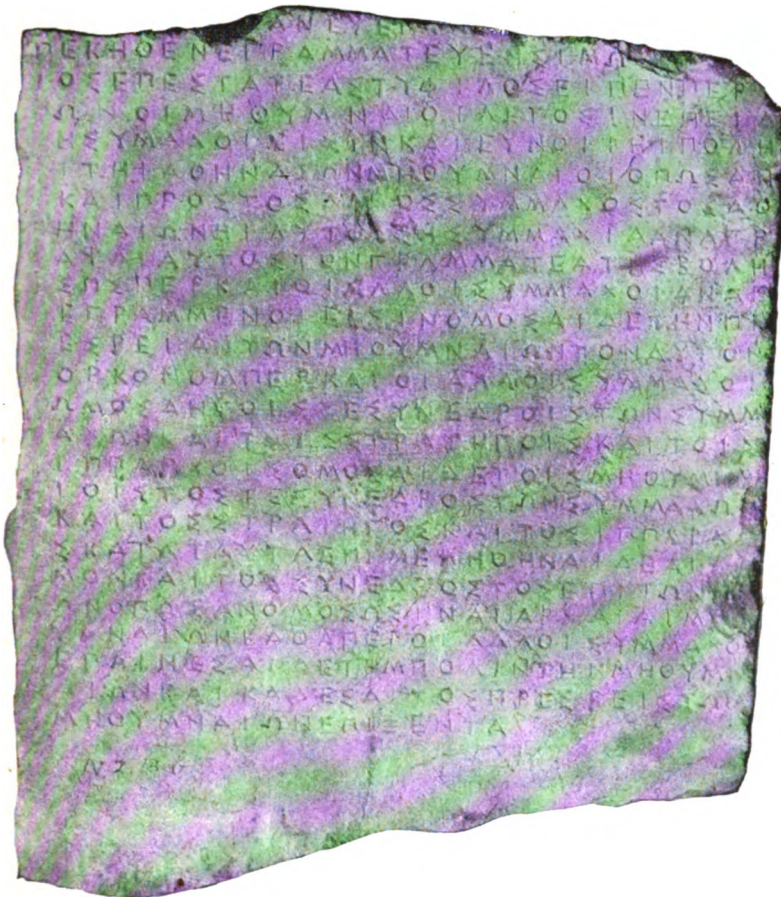 ΑΝΕΥΕΝ
ΠΕΚΗΘΕΝΕΓΡΑΜΜΑΤΕΥΕΝΣΙΜΩ
ΙΟΣΕΠΕΣΤΑΤΕΑΣΤΥΦΙΛΟΣΕΙΠΕΝΠΕΡ
ΩΝΟΙΜΗΘΥΜΝΑΙΟΙΛΕΓΟΣΙΝΕΠΕΙΔ
ΗΣΥΜΜΑΧΟΙΕΙΣΙΝΚΑΙΕΥΝΟΙΤΗΙΠΟΛΕ
ΙΤΗΙΑΘΗΝΑΙΩΝΜΗΘΥΜΝΑΙΟΙΟΠΩΣΑΝ
ΚΑΙΠΡΟΣΤΟΣΑΛΛΟΣΣΥΜΜΑΧΟΣΤΟΣΑΘ
ΗΝΑΙΩΝΗΙΑΥΤΟΙΣΗΣΥΜΜΑΧΙΑΑΝΑΓΡ
ΑΨΑΙΑΥΤΟΣΤΟΝΓΡΑΜΜΑΤΕΑΤΗΣΒΟΛΗ
ΣΩΣΠΕΡΚΑΙΟΙΑΛΛΟΙΣΥΜΜΑΧΟΙΑΝΑΓ
ΕΓΡΑΜΜΕΝΟΙΕΙΣΙΝΟΜΟΣΑΙΔΕΤΗΝΠΡ
ΕΣΒΕΙΑΝΤΩΝΜΗΘΥΜΝΑΙΩΝΤΟΝΑΥΤΟΝ
ΟΡΚΟΝΟΜΠΕΡΚΑΙΟΙΑΛΛΟΙΣΥΜΜΑΧΟΙ
ΩΜΟΣΑΝΤΟΙΣΤΕΣΥΝΕΔΡΟΙΣΤΩΝΣΥΜΜ
ΑΧΩΝΚΑΙΤΟΙΣΣΤΡΑΤΗΓΟΙΣΚΑΙΤΟΙΣ
ΙΠΠΑΡΧΟΙΣΟΜΟΣΑΙΔΕΤΟΙΣΜΗΘΥΜΝΑ
ΙΟΙΣΤΟΣΤΕΣΥΝΕΔΡΟΣΤΩΝΣΥΜΜΑΧΩΝ
ΚΑΙΤΟΣΣΤΡΑΤΗΓΟΣΚΑΙΤΟΣΙΠΠΑΡΧΟ
ΣΚΑΤΑΤΑΥΤΑΕΠΙΜΕΛΗΘΗΝΑΙΔΕΑΙΣΙ
ΜΟΝΚΑΙΤΟΣΣΥΝΕΔΡΟΣΤΟΣΕΠΙΤΩΝΝ
ΕΩΝΟΠΩΣΑΝΟΜΟΣΩΣΙΝΑΙΑΡΧΑΙ
ΥΜΝΑΙΩΝΚΑΘΑΠΕΡΟΙΑΛΛΟΙΣΥΜΜΑΧΟ
ΕΠΑΙΝΕΣΑΙΔΕΤΗΜΠΟΛΙΝΤΗΝΜΗΘΥΜ
ΝΑΙΩΝΚΑΙΚΑΛΕΣΑΙΤΟΣΠΡΕΣΒΕΙΣΤΩΝ
ΜΗΘΥΜΝΑΙΩΝΕΠΙΞΕΝΙΑ